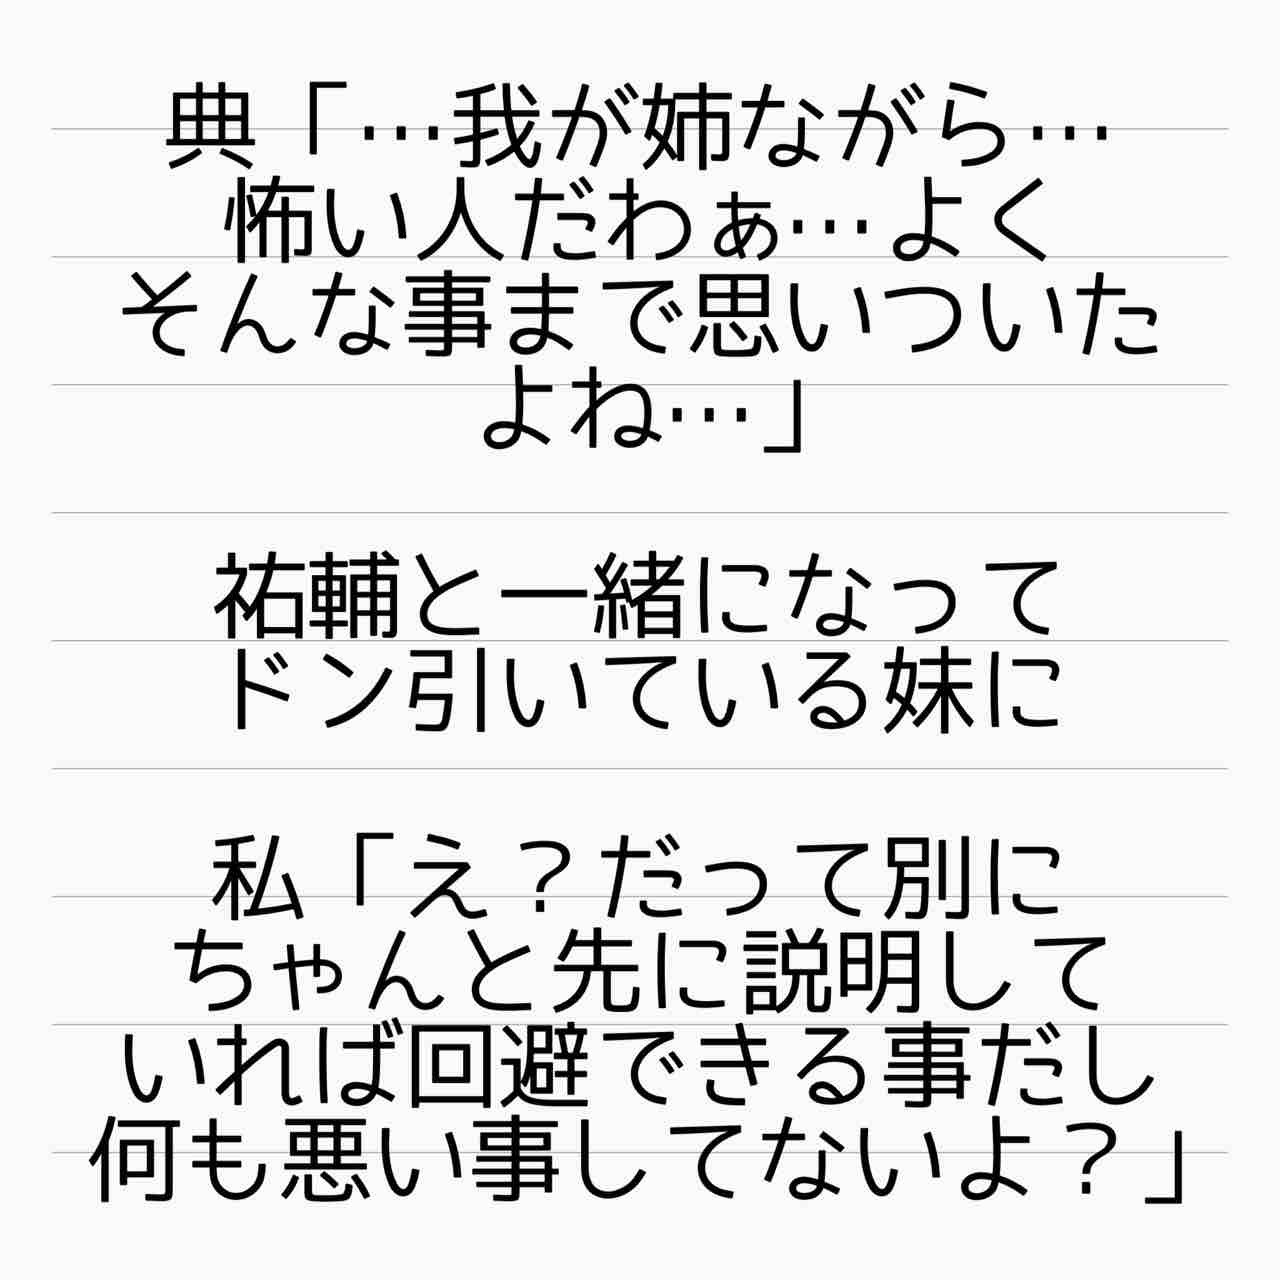 典「…我が姉ながら…
怖い人だわぁ…よく
そんな事まで思いついた
よね…」
祐輔と一緒になって
ドン引いている妹に
私「え？だって別に
ちゃんと先に説明して
いれば回避できる事だし
何も悪い事してないよ？」